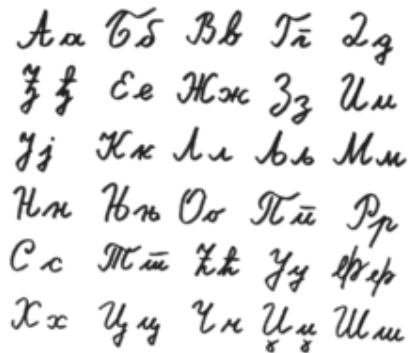 А а Б б В в Г г Д д
Ђ ђ Е е Ж ж З з И и
Ј ј К к Л л Љ љ М м
Н н Њ њ О о П п Р р
С с Т т Ћ ћ У у Ф ф
Х х Ц ц Ч ч Џ џ Ш ш